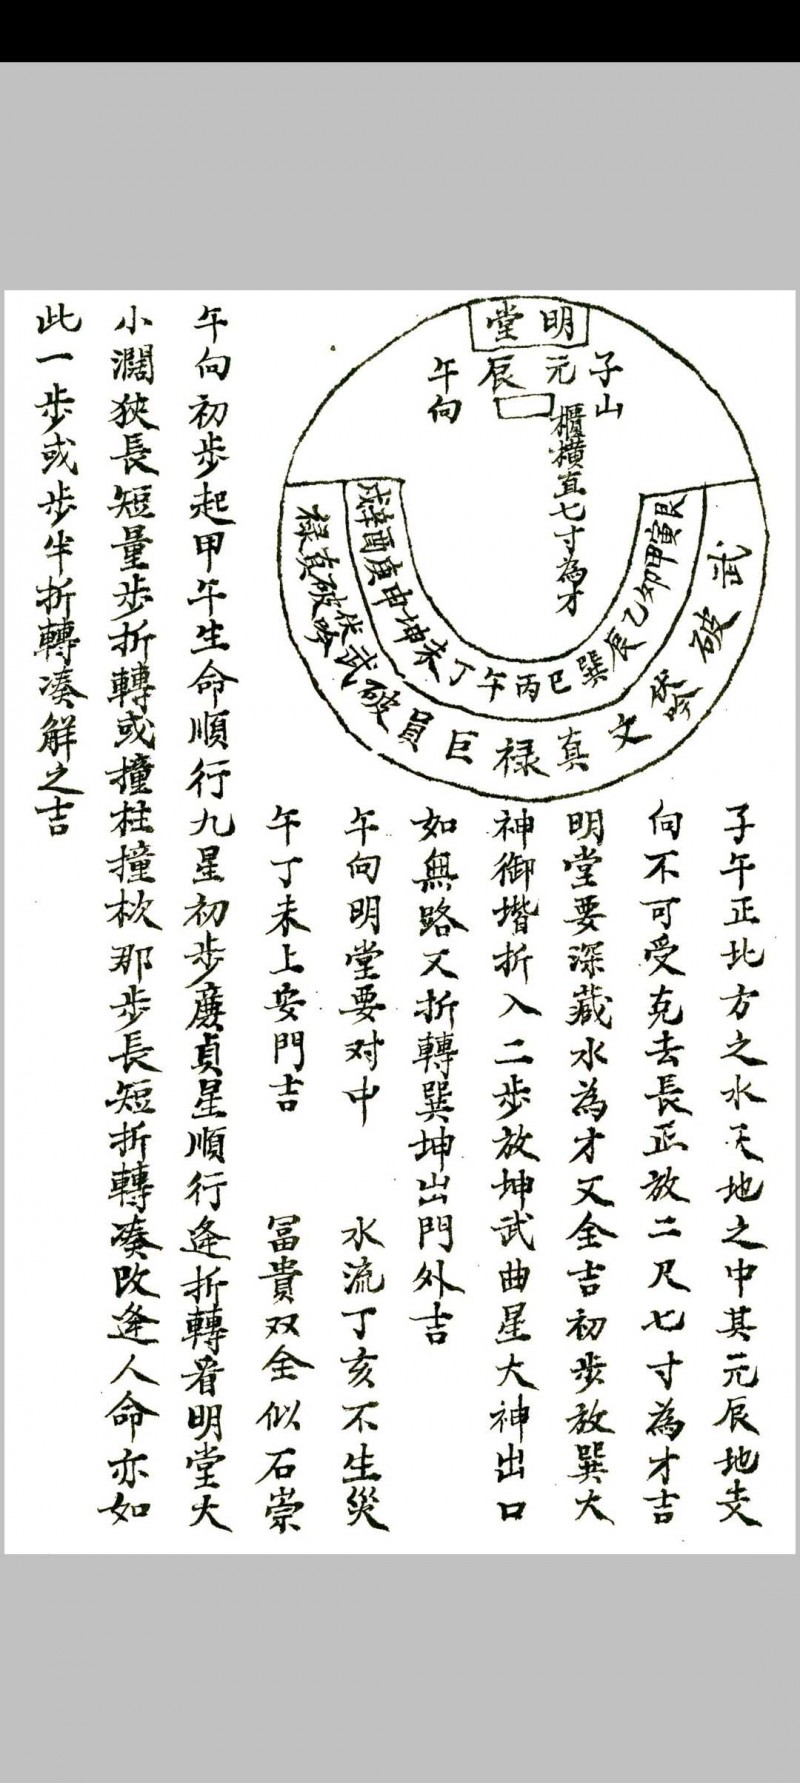 明堂
子山
元辰
午向
櫃橫直七寸為才
艮寅甲卯乙辰巽巳丙午丁未坤申庚酉辛戌
武破
文真祿巨員破武伏吟破真祿
子午正北方之水天地之中其元辰地支
向不可受克去長正放二尺七寸為才吉
明堂要深藏水為才又全吉初步放巽大
神御堦折入二步放坤武曲星大神出口
如無路又折轉巽坤出門外吉
午向明堂要对中　水流丁亥不生災
午丁未上安門吉　冨貴双全似石崇
午向初步起甲午生命順行九星初步廉貞星順行逢折轉看明堂大
小濶狹長短量步折轉或撞柱撞杦那步長短折轉湊改逢人命亦如
此一步或步半折轉湊解之吉